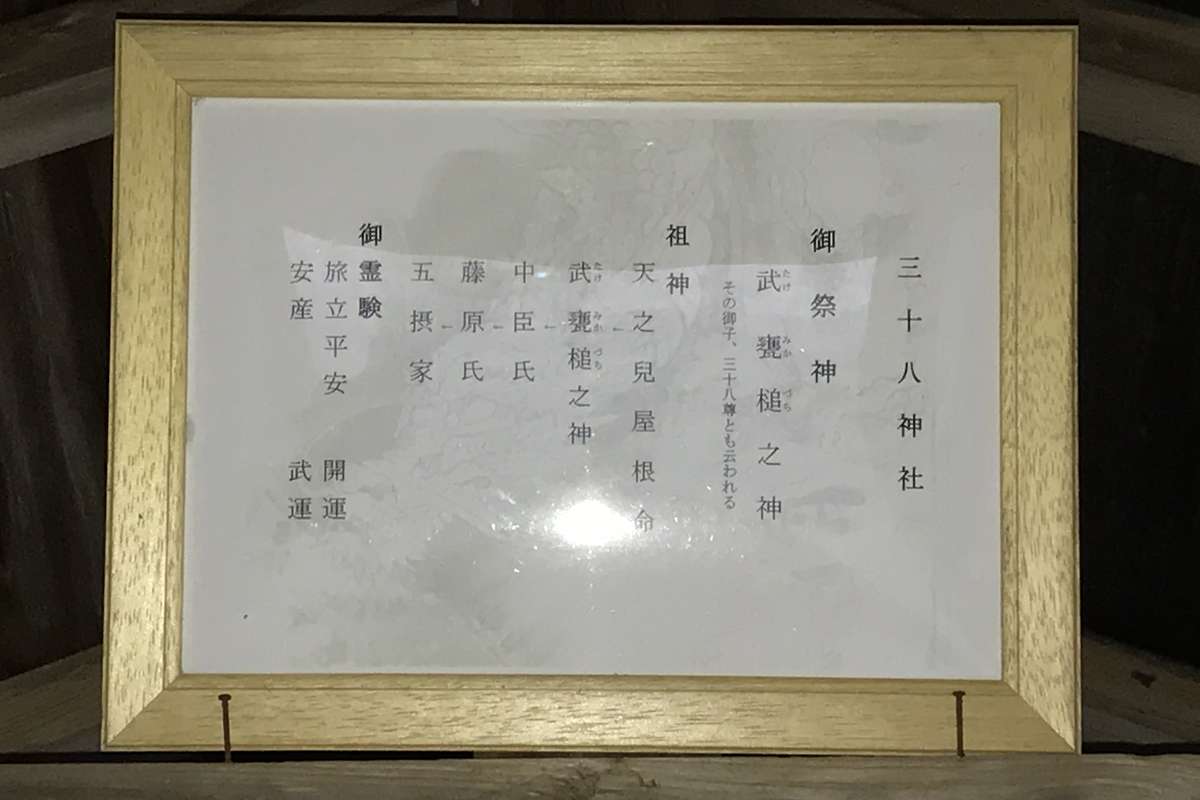 三十八神社
御祭神
武甕槌之神
たけ みか づち
その御子、三十八尊とも云われる
祖神
天之兒屋根命
←
武甕槌之神
たけ みか づち
←
中臣氏
←
藤原氏
←
五摂家
御霊験
旅立平安 開運
安産 武運